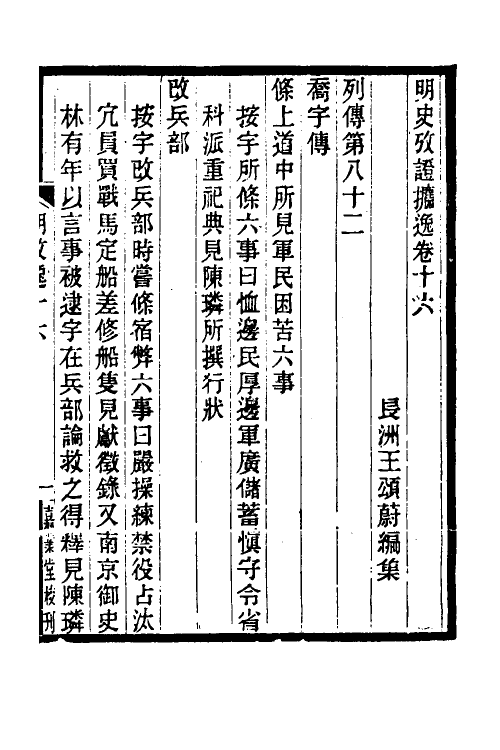 明史攷證攟逸卷十六
長洲王頌蔚編集
列傳第八十二
喬宇傳
條上道中所見軍民困苦六事
按宇所條六事曰恤邊民厚邊軍廣儲蓄愼守令省
科派重祀典見陳璘所撰行狀
改兵部
按宇改兵部時嘗條宿弊六事曰嚴操練禁役占汰
冗員買戰馬定船差修船隻見獻徵錄又南京御史
林有年以言事被逮宇在兵部論救之得釋見陳璘
明攷逸十六
一
嘉業堂校刊